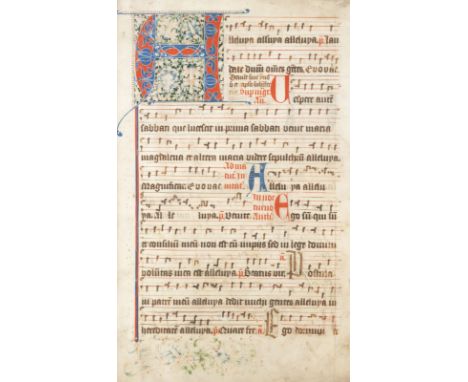 lleluya alluya alleluya. p̄ Lau
date dnm̄ om̄es getēs. Evovae
Cespere aute
sabbati que lucescit in prima sabbati venit maria
magdalena et altera maria videre sepulchrū alleluya.
Magnificat. Evovae Alleluya allelu
ya. Al le luya. p̄ Venite. Ego sū qui sū
et consiliū meū non est cū impijs sed in lege domini
voluntas mea est alleluya. p̄ Beatus vir. Postula
vi patrē meū alleluya dedit michi gentes alleluya in
hereditatē alleluya. p̄ Quare fre. a Ego dormivi